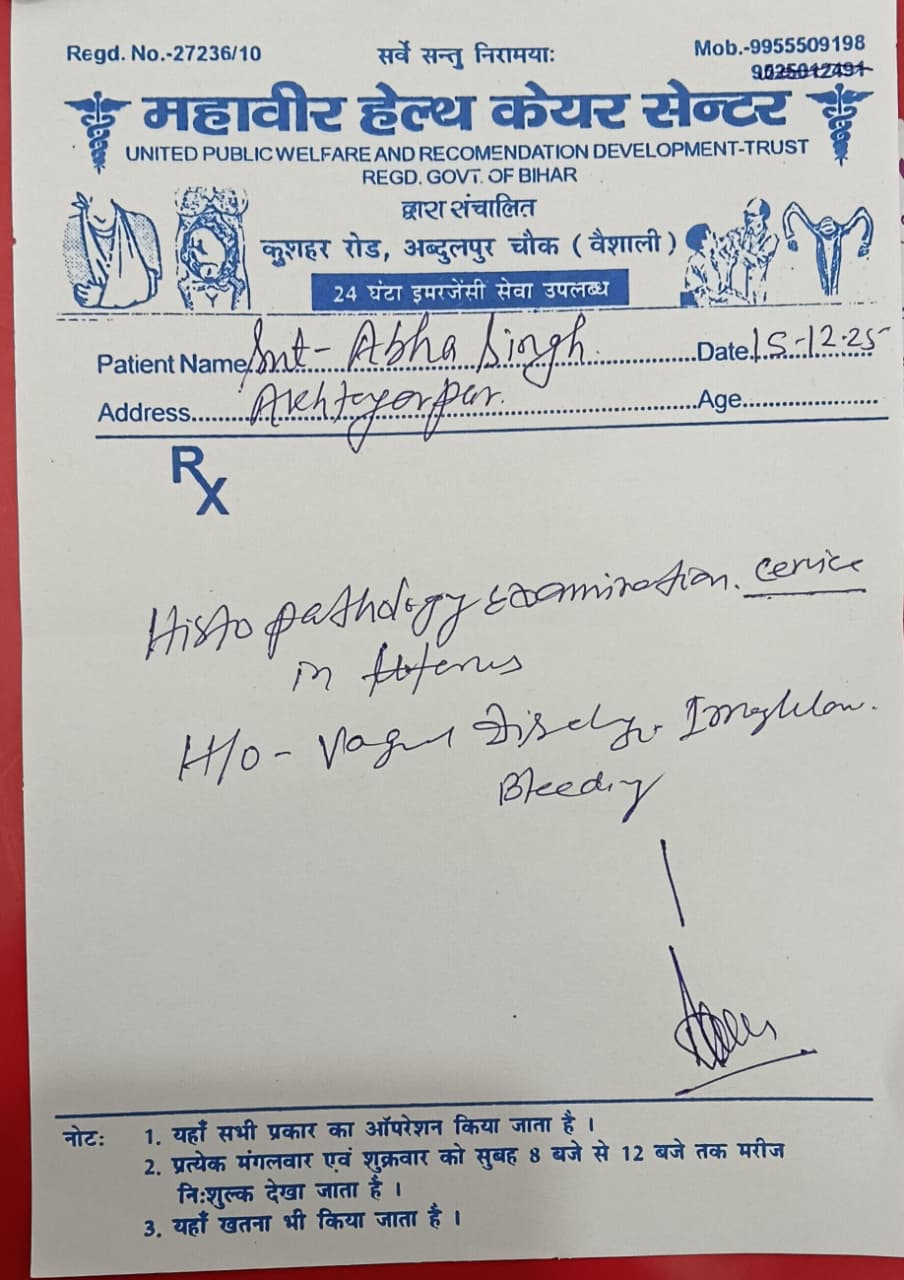 Regd. No.-27236/10
सर्वे सन्तु निरामया:
Mob.-9955509198
महावीर हेल्थ केयर सेन्टर
UNITED PUBLIC WELFARE AND RECOMENDATION DEVELOPMENT-TRUST
REGD. GOVT. OF BIHAR
द्वारा संचालित
कुशहर रोड, अब्दुलपुर चौक ( वैशाली )
24 घंटा इमरजेंसी सेवा उपलब्ध
Patient Name Smt- Abha Singh Date 15-12-25
Address Akhtyorpur. Age
Rx
Histo pathology examination. cervice
in uterus
H/O -
Bleeding
नोट: 1. यहाँ सभी प्रकार का ऑपरेशन किया जाता है ।
2. प्रत्येक मंगलवार एवं शुक्रवार को सुबह 8 बजे से 12 बजे तक मरीज
नि:शुल्क देखा जाता है ।
3. यहाँ खतना भी किया जाता है ।